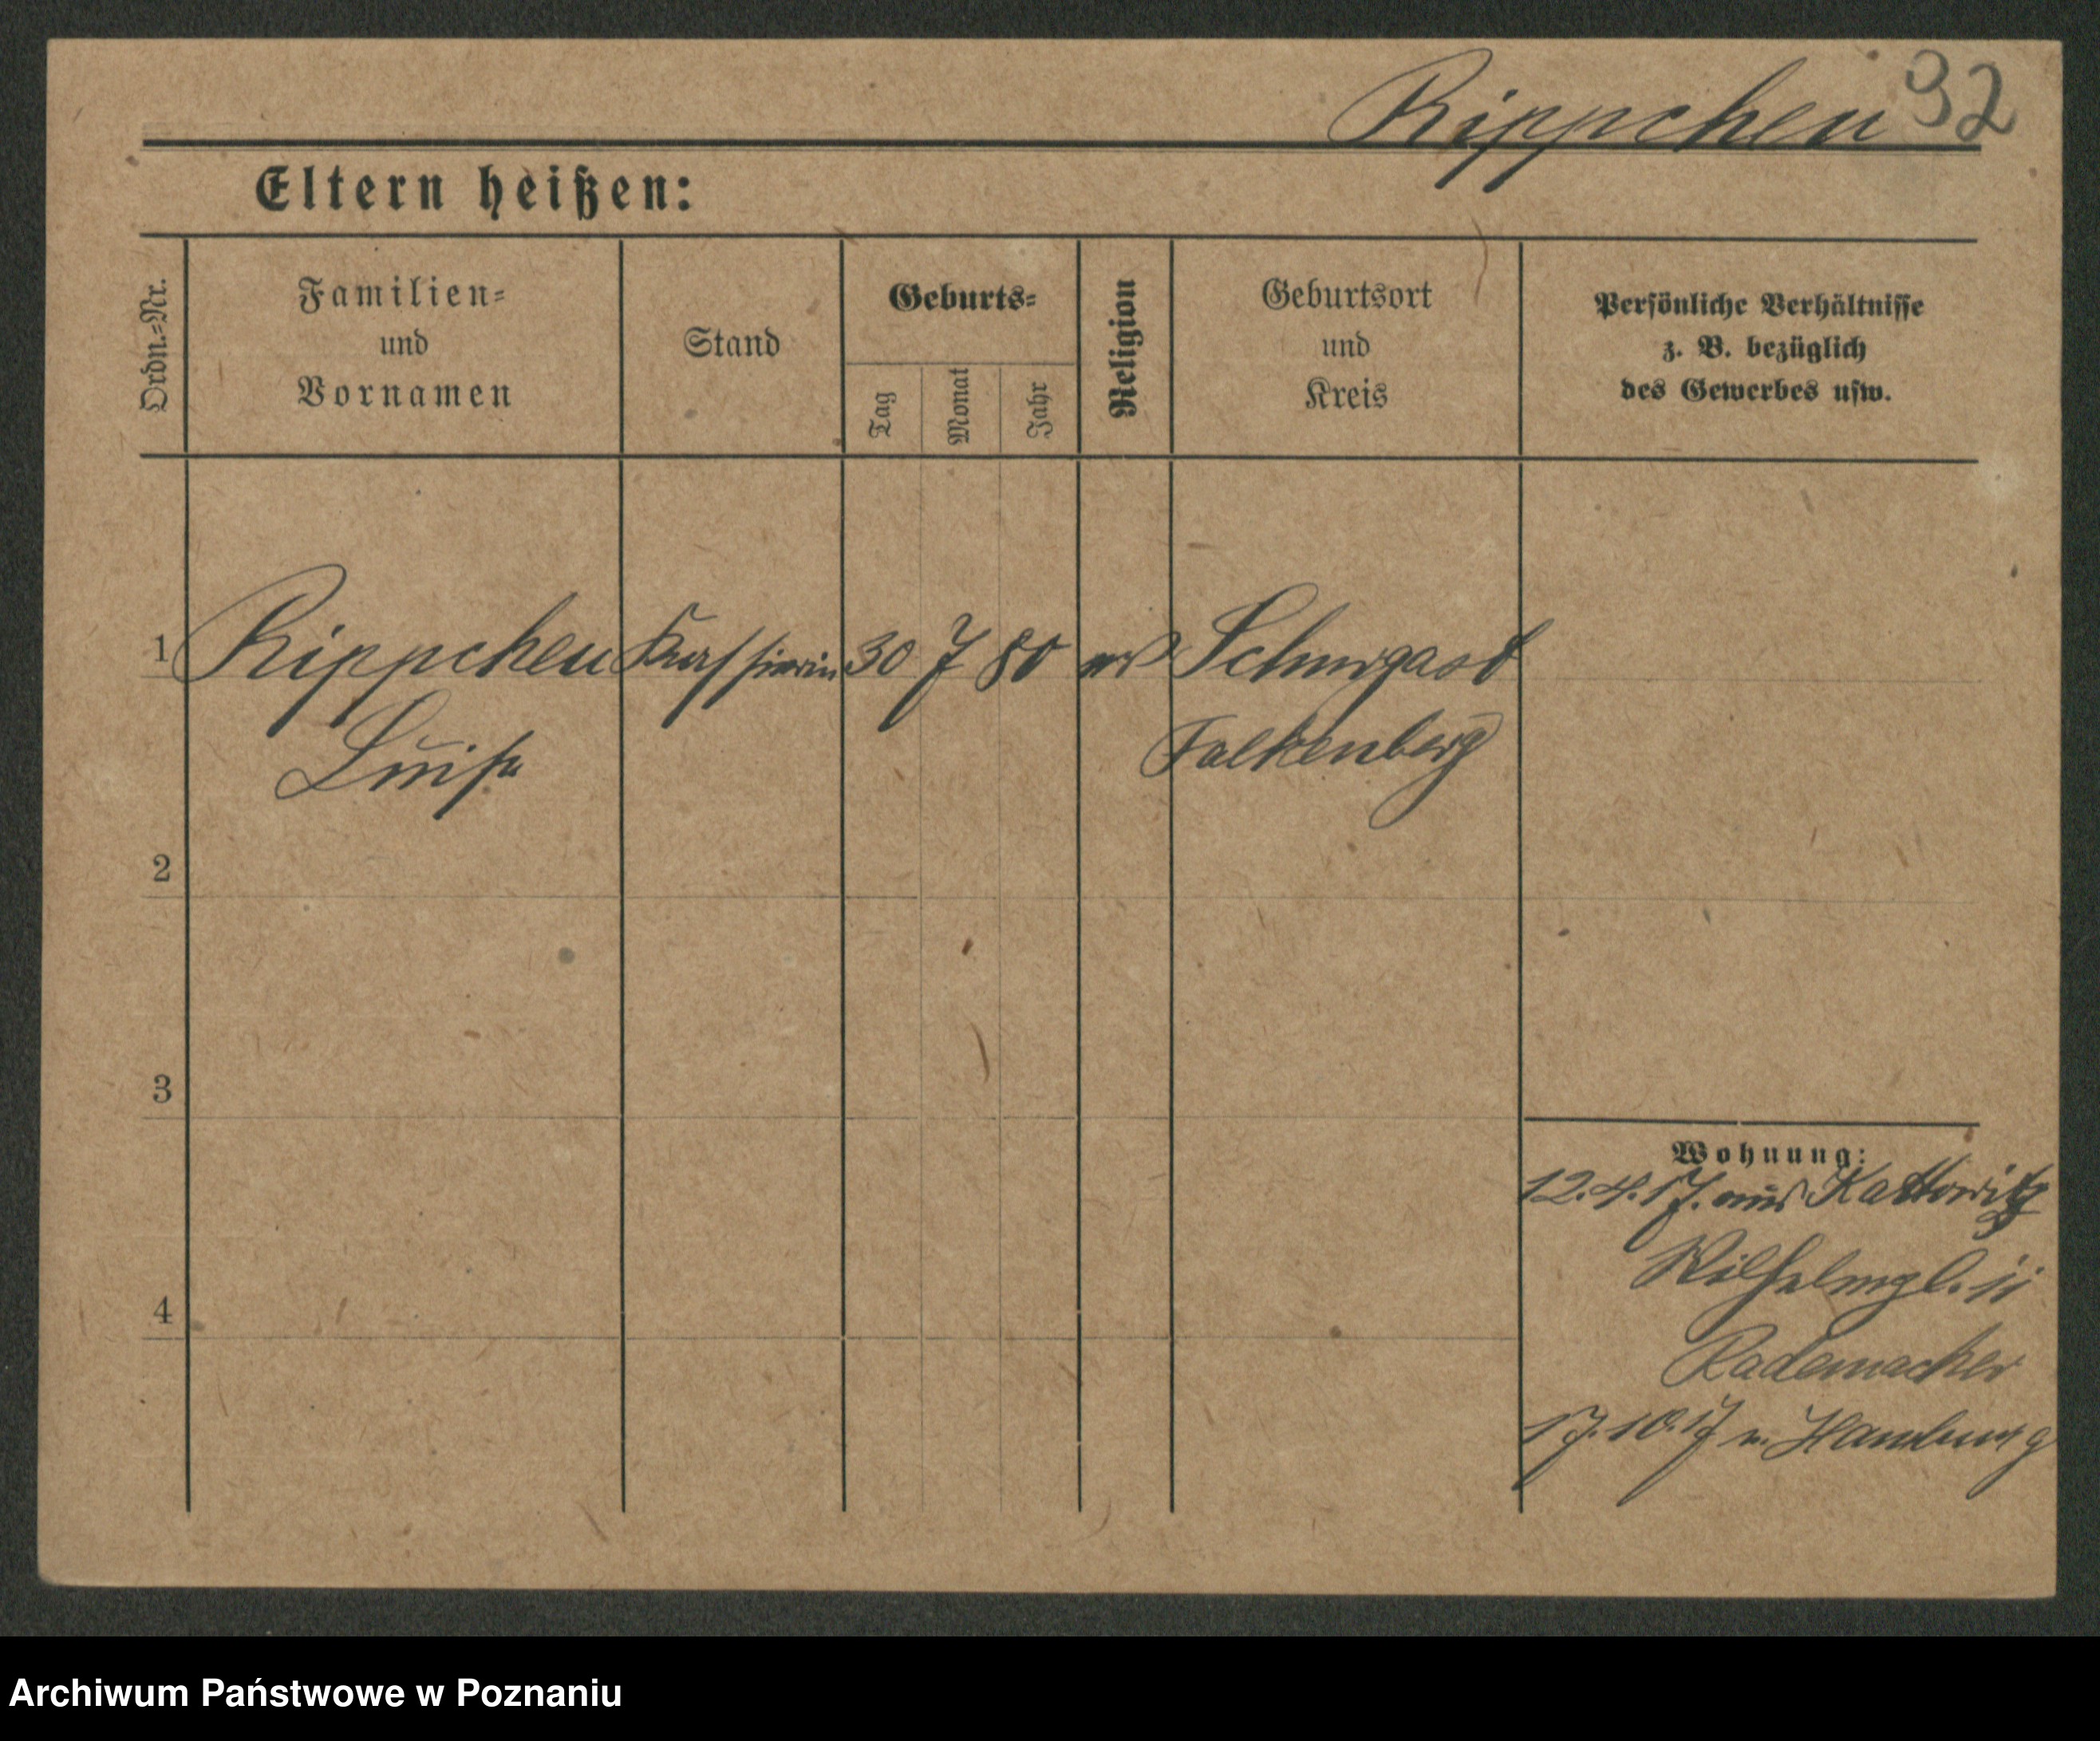 Rippchen 32
Eltern heißen:
Ordn.-Nr.
Familien-
und
Vornamen
Stand
Geburts-
Tag
Monat
Jahr
Religion
Geburtsort
und
Kreis
Persönliche Verhältnisse
z. B. bezüglich
des Gewerbes usw.
1 Rippchen Kassiererin 30 7 80 Schurgast
Luise Falkenberg
2
3
4
Wohnung:
12.4.17. aus Kattowitz
Wilhelmpl. 11
Rademacher
17.10.17 n. Hamburg
Archiwum Państwowe w Poznaniu